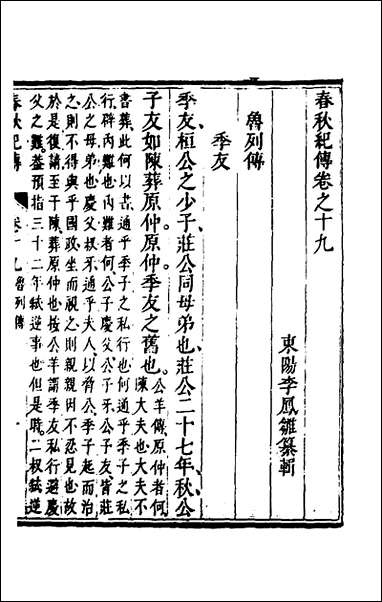 春秋紀傳卷之十九
東陽李鳳雛纂輯
魯列傳
季友
季友桓公之少子莊公同母弟也莊公二十七年秋公
子友如陳葬原仲原仲季友之舊也
公羊傳原仲者何
陳大夫也大夫不
書葬此何以書通乎季子之私行也何通乎季子之私
行辟內難也內難者何公子慶父公子牙公子友皆莊
公之母弟也慶父叔牙通乎夫人以脅公季子起而治
之則不得與乎國政坐而視之則親親因不忍見也故
於是復請至于陳葬原仲也按公羊謂季友私行避慶
父之難蓋預指三十二年弒逆事也但是時二叔弒逆
春秋紀傳
卷十九
魯列傳